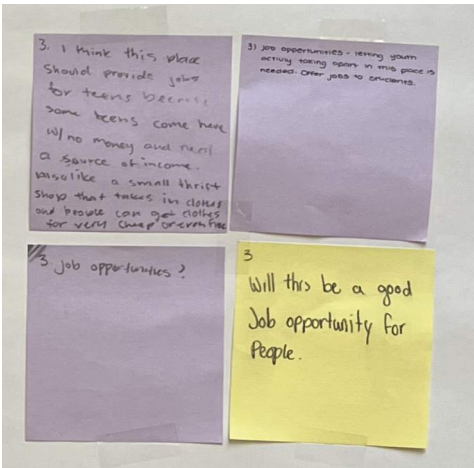 3. I think this place
should provide jobs
for teens because
some teens come here
w/ no money and need
a source of income.
also like a small thrift
shop that takes in clothes
and people can get clothes
for very cheap or even free
3) Job oppertunities - letting youth
activly taking apart in this place is
needed. Offer jobs to
3. job opportunities?
3
Will this be a good
Job opportunity for
People.